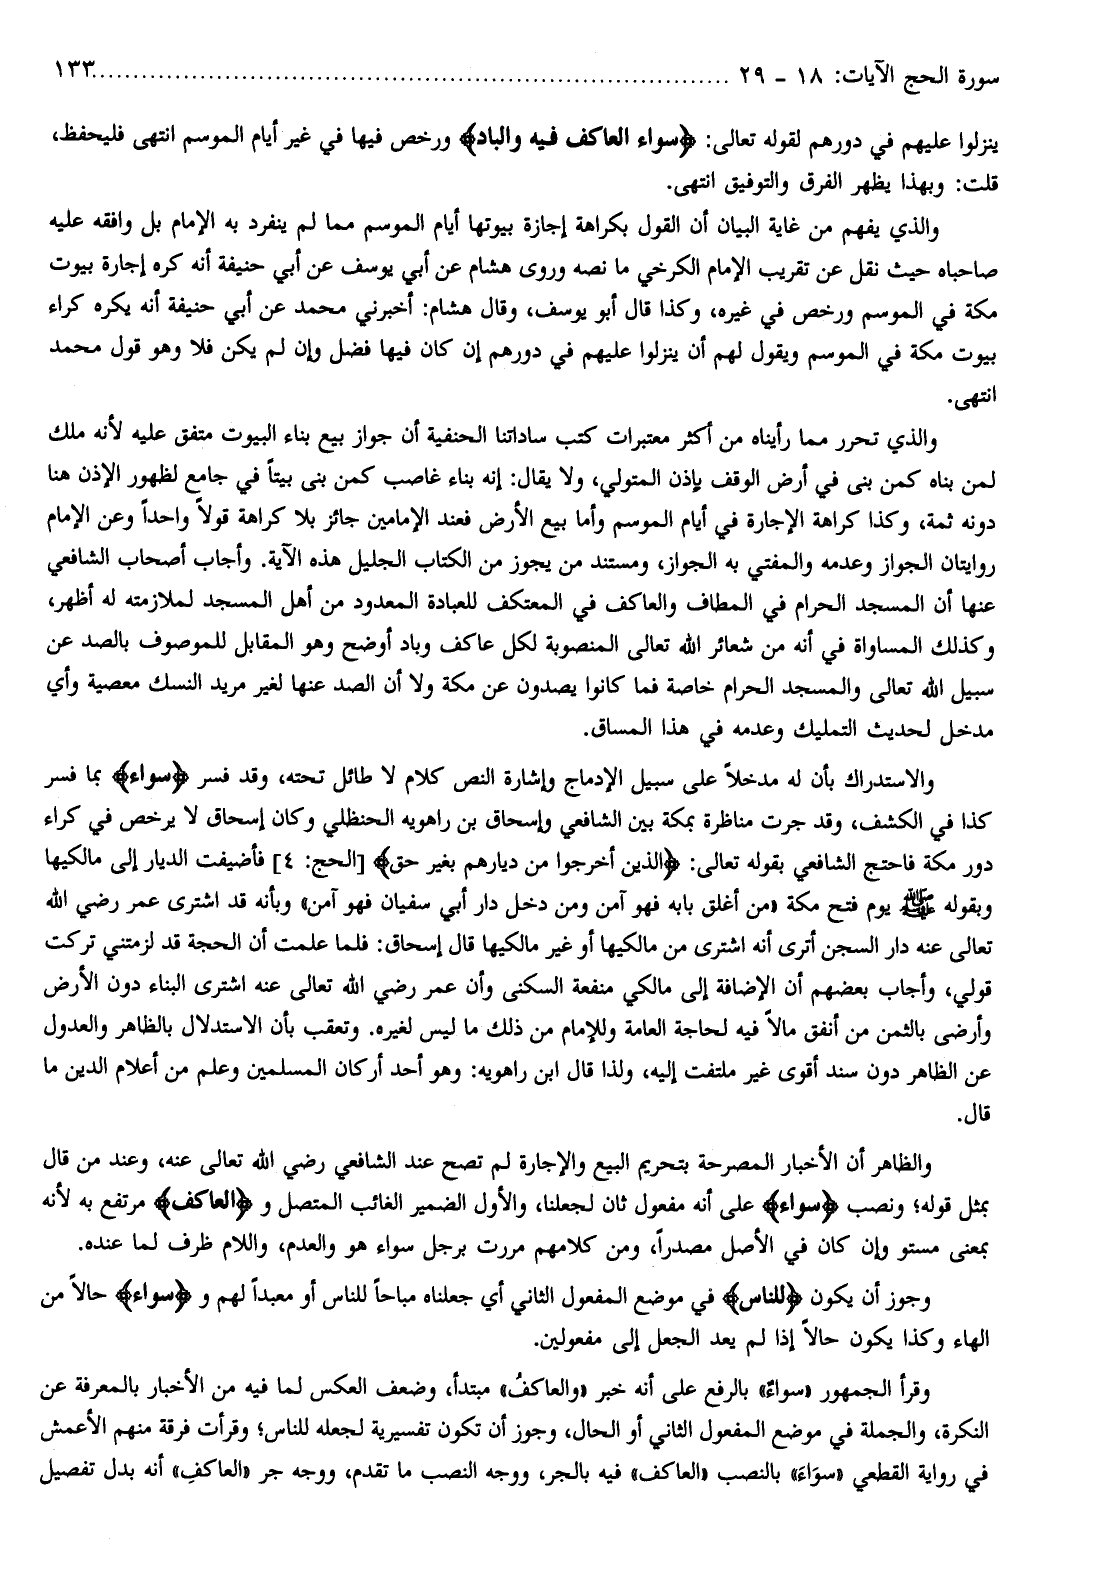 سورة الحج الآيات: ١٨ - ٢٩ ........................................................................... ١٣٣
ينزلوا عليهم في دورهم لقوله تعالى: ﴿سواء العاكف فيه والباد﴾ ورخص فيها في غير أيام الموسم انتهى فليحفظ،
قلت: وبهذا يظهر الفرق والتوفيق انتهى.
والذي يفهم من غاية البيان أن القول بكراهة إجازة بيوتها أيام الموسم مما لم ينفرد به الإمام بل وافقه عليه
صاحباه حيث نقل عن تقريب الإمام الكرخي ما نصه وروى هشام عن أبي يوسف عن أبي حنيفة أنه كره إجارة بيوت
مكة في الموسم ورخص في غيره، وكذا قال أبو يوسف، وقال هشام: أخبرني محمد عن أبي حنيفة أنه يكره كراء
بيوت مكة في الموسم ويقول لهم أن ينزلوا عليهم في دورهم إن كان فيها فضل وإن لم يكن فلا وهو قول محمد
انتهى.
والذي تحرر مما رأيناه من أكثر معتبرات كتب ساداتنا الحنفية أن جواز بيع بناء البيوت متفق عليه لأنه ملك
لمن بناه كمن بنى في أرض الوقف بإذن المتولي، ولا يقال: إنه بناء غاصب كمن بنى بيتاً في جامع لظهور الإذن هنا
دونه ثمة، وكذا كراهة الإجارة في أيام الموسم وأما بيع الأرض فعند الإمامين جائز بلا كراهة قولاً واحداً وعن الإمام
روايتان الجواز وعدمه والمفتي به الجواز، ومستند من يجوز من الكتاب الجليل هذه الآية. وأجاب أصحاب الشافعي
عنها أن المسجد الحرام في المطاف والعاكف في المعتكف للعبادة المعدود من أهل المسجد لملازمته له أظهر،
وكذلك المساواة في أنه من شعائر الله تعالى المنصوبة لكل عاكف وباد أوضح وهو المقابل للموصوف بالصد عن
سبيل الله تعالى والمسجد الحرام خاصة فما كانوا يصدون عن مكة ولا أن الصد عنها لغير مريد النسك معصية وأي
مدخل لحديث التمليك وعدمه في هذا المساق.
والاستدراك بأن له مدخلاً على سبيل الإدماج وإشارة النص كلام لا طائل تحته، وقد فسر ﴿سواء﴾ بما فسر
كذا في الكشف، وقد جرت مناظرة بمكة بين الشافعي وإسحاق بن راهويه الحنظلي وكان إسحاق لا يرخص في كراء
دور مكة فاحتج الشافعي بقوله تعالى: ﴿الذين أخرجوا من ديارهم بغير حق﴾ [الحج: ٤] فأضيفت الديار إلى مالكيها
وبقوله ﷺ يوم فتح مكة «من أغلق بابه فهو آمن ومن دخل دار أبي سفيان فهو آمن» وبأنه قد اشترى عمر رضي الله
تعالى عنه دار السجن أترى أنه اشترى من مالكيها أو غير مالكيها قال إسحاق: فلما علمت أن الحجة قد لزمتني تركت
قولي، وأجاب بعضهم أن الإضافة إلى مالكي منفعة السكنى وأن عمر رضي الله تعالى عنه اشترى البناء دون الأرض
وأرضى بالثمن من أنفق مالاً فيه لحاجة العامة وللإمام من ذلك ما ليس لغيره. وتعقب بأن الاستدلال بالظاهر والعدول
عن الظاهر دون سند أقوى غير ملتفت إليه، ولذا قال ابن راهويه: وهو أحد أركان المسلمين وعلم من أعلام الدين ما
قال.
والظاهر أن الأخبار المصرحة بتحريم البيع والإجارة لم تصح عند الشافعي رضي الله تعالى عنه، وعند من قال
بمثل قوله؛ ونصب ﴿سواء﴾ على أنه مفعول ثان لجعلنا، والأول الضمير الغائب المتصل و ﴿العاكف﴾ مرتفع به لأنه
بمعنى مستو وإن كان في الأصل مصدراً، ومن كلامهم مررت برجل سواء هو والعدم، واللام ظرف لما عنده.
وجوز أن يكون ﴿للناس﴾ في موضع المفعول الثاني أي جعلناه مباحاً للناس أو معبداً لهم و ﴿سواء﴾ حالاً من
الهاء وكذا يكون حالاً إذا لم يعد الجعل إلى مفعولين.
وقرأ الجمهور «سواءٌ» بالرفع على أنه خبر «والعاكفُ» مبتدأ، وضعف العكس لما فيه من الأخبار بالمعرفة عن
النكرة، والجملة في موضع المفعول الثاني أو الحال، وجوز أن تكون تفسيرية لجعله للناس؛ وقرأت فرقة منهم الأعمش
في رواية القطعي «سوَاءَ» بالنصب «العاكف» فيه بالجر، ووجه النصب ما تقدم، ووجه جر «العاكفِ» أنه بدل تفصيل